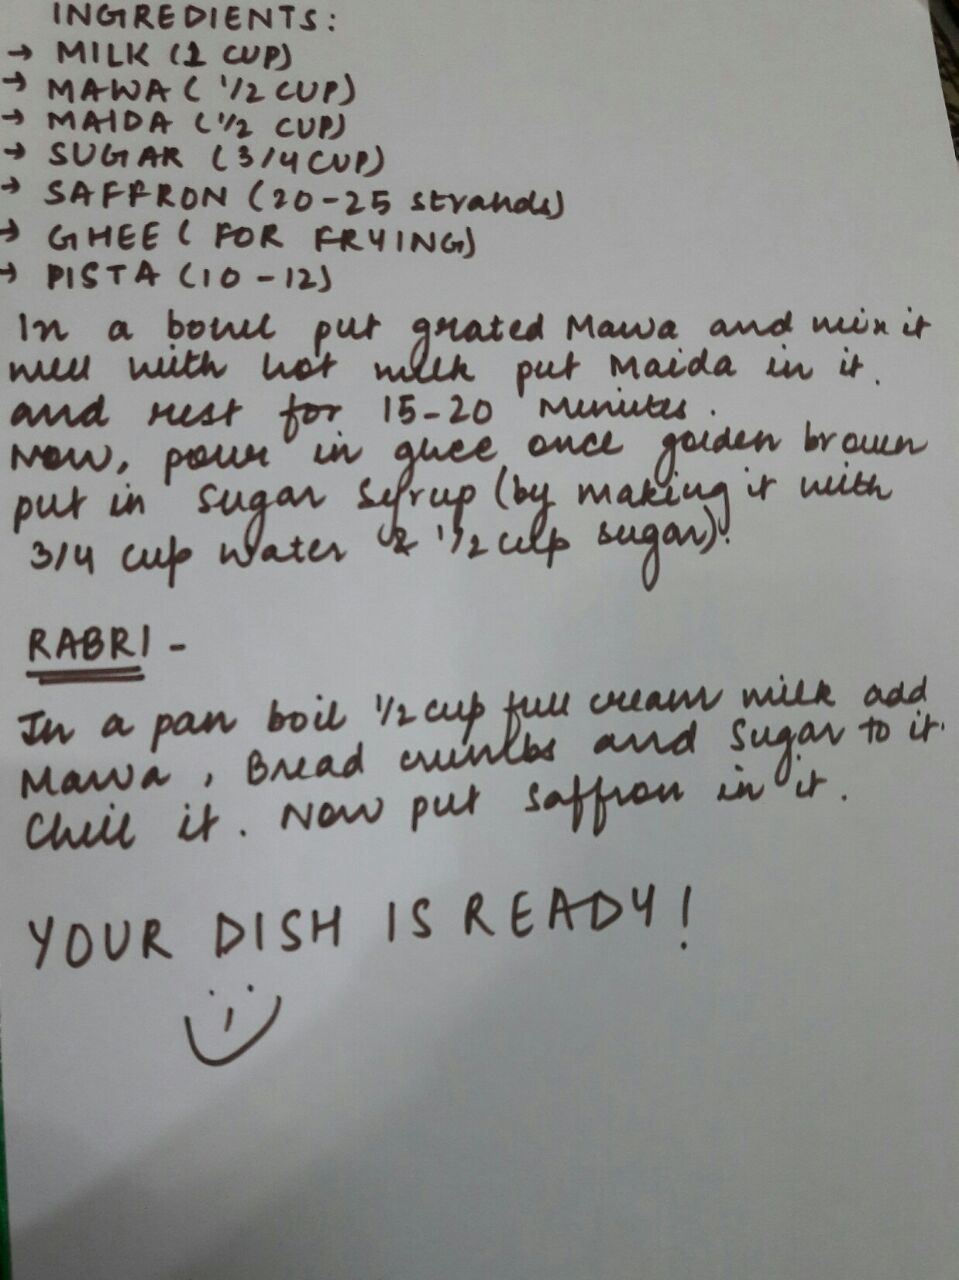 INGREDIENTS:
→ MILK (1 CUP)
→ MAWA ( 1/2 CUP)
→ MAIDA (1/2 CUP)
→ SUGAR (3/4 CUP)
→ SAFFRON (20-25 strands)
→ GHEE ( FOR FRYING)
→ PISTA (10-12)
In a bowl put grated Mawa and mix it
well with hot milk put Maida in it.
and rest for 15-20 Minutes.
Now, pour in ghee once golden brown
put in sugar syrup (by making it with
3/4 cup water & 1/2 cup sugar).
RABRI -
In a pan boil 1/2 cup full cream milk add
Mawa, Bread crumbs and sugar to it.
Chill it. Now put saffron in it.
YOUR DISH IS READY!